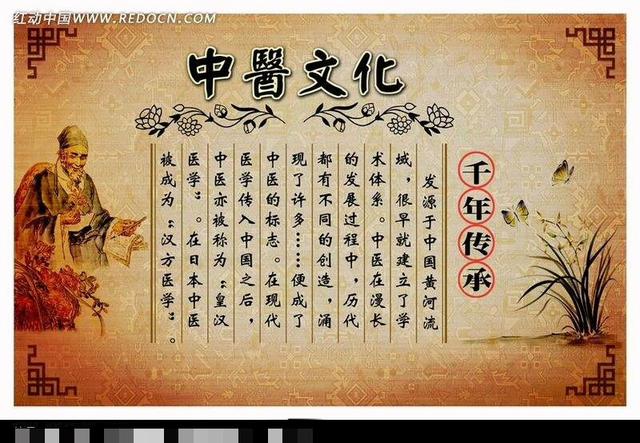 红动中国WWW.REDOCN.COM
中醫文化
千年传承
发源于中国黄河流
域，很早就建立了学
术体系。中医在漫长
的发展过程中，历代
都有不同的创造，涌
现了许多……便成了
中医的标志。在现代
医学传入中国之后，
中医亦被称为“皇汉
医学”。在日本中医
被成为“汉方医学”。